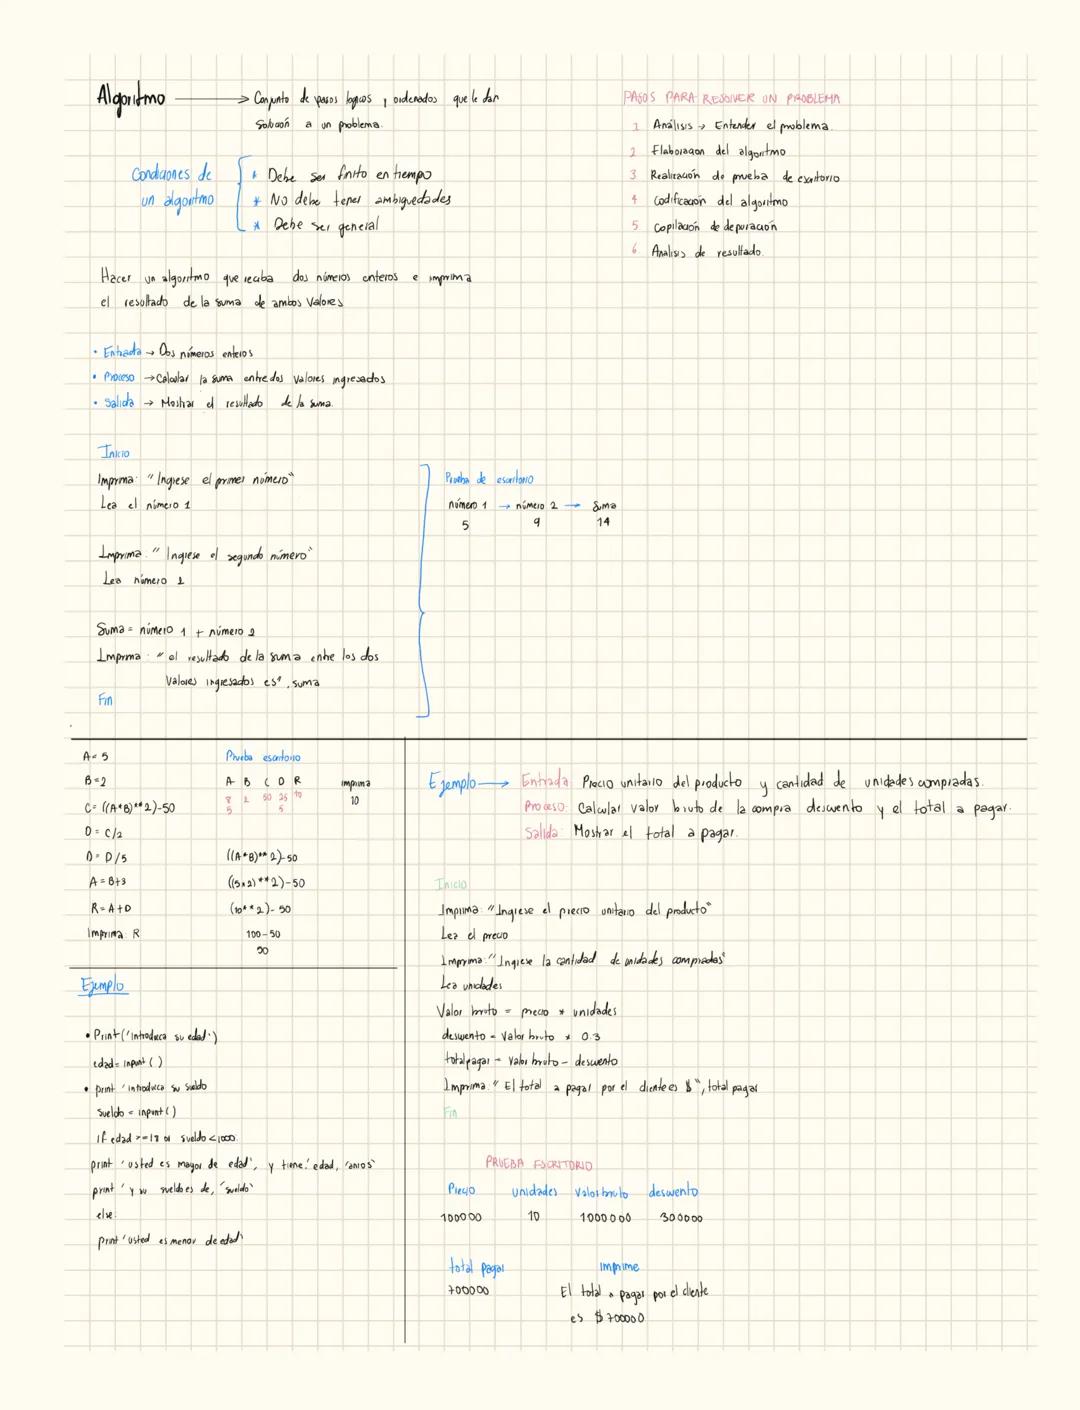 Algoritmo → Conjunto de pasos logicos y ordenados que le dan
solución a un problema.
Condiciones de
un algoritmo
* Debe ser finito en tiempo
* No debe tener ambiguedades
* Debe ser general
PASOS PARA RESOLVER UN PROBLEMA
1 Análisis → Entender el problema.
2 Elaboración del algoritmo
3 Realización de prueba de escritorio
4 Codificación del algoritmo
5 Copilación de depuración
6 Analisis de resultado.
Hacer un algoritmo que reciba dos números enteros e imprima
el resultado de la suma de ambos valores
• Entrada → Dos números enteros
• Proceso → Calcular la suma entre dos valores ingresados
• Salida → Mostrar el resultado de la suma.
Inicio
Imprima: "Ingrese el primer número"
Lea el número 1
Imprima: "Ingrese el segundo número"
Lea número 2
Suma = número 1 + número 2
Imprima: "el resultado de la suma entre los dos
valores ingresados es", suma
Fin
Prueba de escritorio
número 1 → número 2 → Suma
5 9 14
A = 5
B = 2
C = ((A*B)**2)-50
D = C/2
D = D/5
A = B+3
R = A+D
Imprima: R
Prueba escritorio
A B C D R imprima
8 2 50 25 10 10
5 5
((A*B)**2)-50
((5x2)**2)-50
(10**2)-50
100-50
50
Ejemplo
• Print('introduzca su edad:')
edad = inpunt ()
• print 'introduzca su sueldo
sueldo = inpunt ()
If edad >=18 or sueldo <1000.
print 'usted es mayor de edad', y tiene:' edad, 'anios'
print 'y su sueldo es de, 'sueldo'
else:
print 'usted es menor de edad'
Ejemplo → Entrada: Precio unitario del producto y cantidad de unidades compradas.
Proceso: Calcular valor bruto de la compra descuento y el total a pagar.
Salida: Mostrar el total a pagar.
Inicio
Imprima: "Ingrese el precio unitario del producto"
Lea el precio
Imprima: "Ingrese la cantidad de unidades compradas"
Lea unidades
Valor bruto = precio * unidades
descuento = Valor bruto * 0.3
total pagar = valor bruto - descuento
Imprima: "El total a pagar por el cliente es $", total pagar
Fin
PRUEBA ESCRITORIO
Precio unidades Valor bruto descuento
100000 10 1000000 300000
total pagar imprime
700000 El total a pagar por el cliente
es $700000